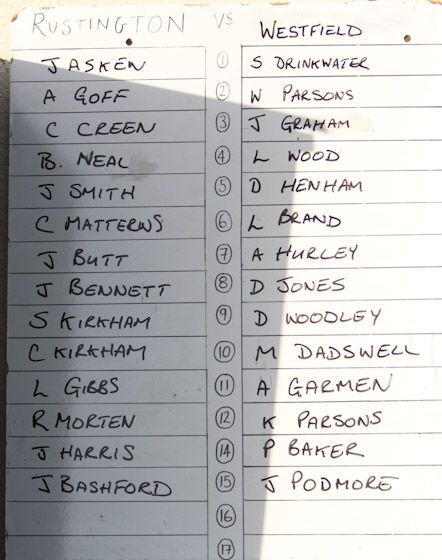 RUSTINGTON VS WESTFIELD
J ASKEN 1 S DRINKWATER
A GOFF 2 W PARSONS
C CREEN 3 J GRAHAM
B. NEAL 4 L WOOD
J SMITH 5 D HENHAM
C MATTERNS 6 L BRAND
J BUTT 7 A HURLEY
J BENNETT 8 D JONES
S KIRKHAM 9 D WOODLEY
C KIRKHAM 10 M DADSWELL
L GIBBS 11 A GARMEN
R MORTEN 12 K PARSONS
J HARRIS 14 P BAKER
J BASHFORD 15 J PODMORE
16
17